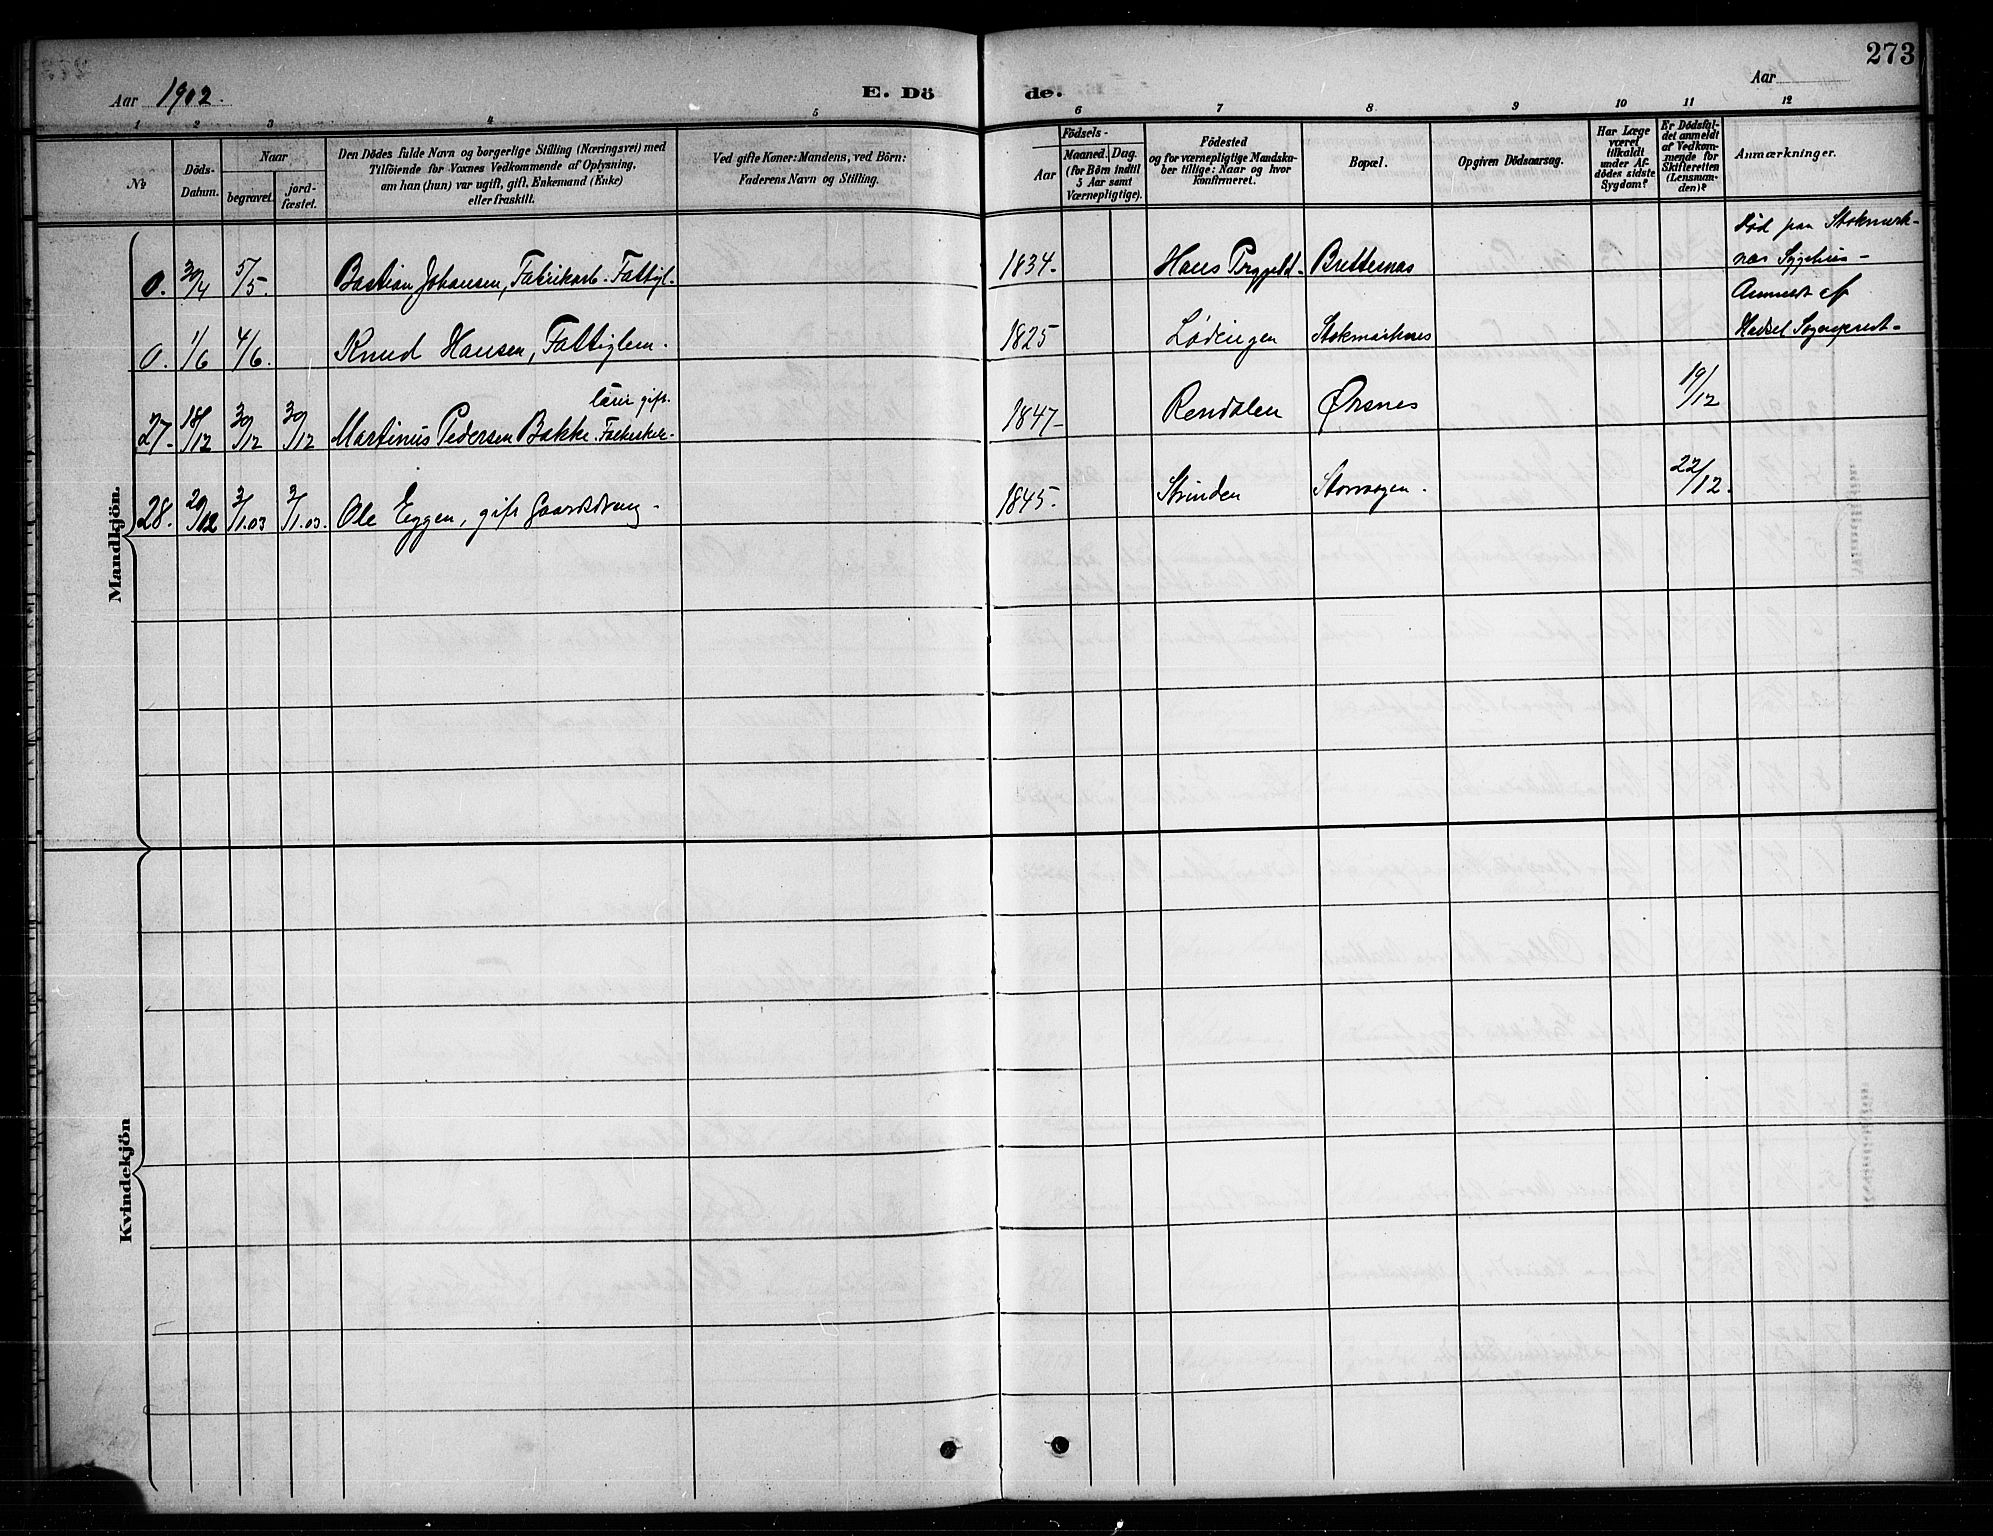 273
Aar 1902.
E. Döde.
Aar
1 2 3 4 5 6 7 8 9 10 11 12
No
Döds-Datum.
Naar
begravet.
jord-fæstet.
Den Dödes fulde Navn og borgerlige Stilling (Næringsvei) med
Tilföiende for Voxnes Vedkommende af Oplysning,
om han (hun) var ugift, gift, Enkemand (Enke)
eller fraskilt.
Ved gifte Koner: Mandens, ved Börn:
Faderens Navn og Stilling.
Födsels-
Aar
Maaned. Dag.
(for Börn indtil
5 Aar samt
Værnepligtige).
Födested
og for værnepligtige Mandska-
ber tillige: Naar og hvor
konfirmeret.
Bopæl.
Opgiven Dödsaarsag.
Har Læge
været
tilkaldt
under Af-
dödes sidste
Sygdom?
Er Dödsfal-
det anmeldt
af Vedkom-
mende for
Skifteretten
(Lensman-
den)?
Anmærkninger.
Mandkjön.
0. 30/4 5/5. Bastian Johansen, Fabrikarb. Fattigl. 1834. Hans Brettesnæs Död paa Stokmark-
næs Sygehus -
0. 1/6 4/6. Knud Hansen, Fattiglem. 1825 Lødingen Stokmarknes Anmeldt af
Hadsel Sogneprest -
lærer gift.
27. 18/12 30/12 30/12 Martinus Pedersen Bakke. Folkeskole- 1847- Rendalen Ørsnes 19/12
28. 20/12 3/1.03 3/1.03. Ole Eggen, gift Gaardsdreng - 1845. Strinden Storvagen. 22/12.
Kvindekjön